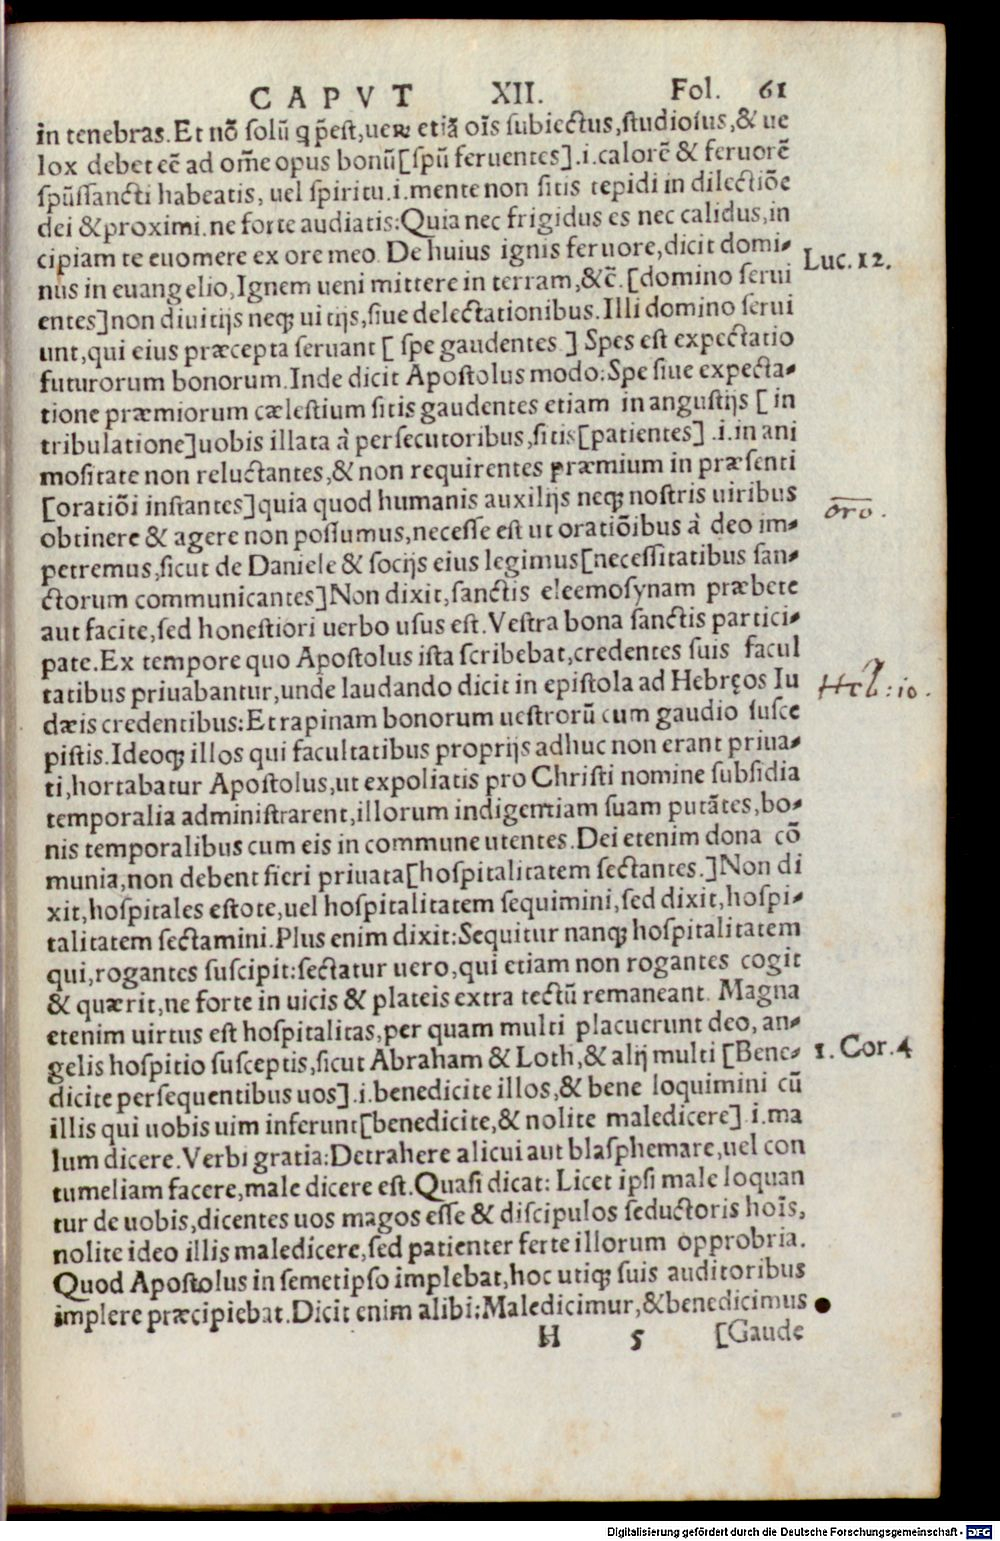 CAPVT XII. Fol. 61
in tenebras.Et nõ solũ q p̃est,ueꝝ etiã oĩs subiectus,studiosus,& ue
lox debet eẽ ad om̃e opus bonũ[spũ feruentes].i.calorẽ & feruorẽ
spũssancti habeatis, uel spiritu.i.mente non sitis tepidi in dilectiõe
dei & proximi.ne forte audiatis:Quia nec frigidus es nec calidus,in
cipiam te euomere ex ore meo. De huius ignis feruore,dicit domi-
nus in euangelio,Ignem ueni mittere in terram,&c̃.[domino serui
Luc.12.
entes]non diuitijs neqꝫ uitijs,siue delectationibus.Illi domino serui
unt,qui eius præcepta seruant [ spe gaudentes ] Spes est expectatio
futurorum bonorum.Inde dicit Apostolus modo:Spe siue expecta-
tione præmiorum cælestium sitis gaudentes etiam in angustijs [ in
tribulatione]uobis illata à persecutoribus,sitis[patientes] .i.in ani
mositate non reluctantes,& non requirentes præmium in præsenti
[oratiõi instantes]quia quod humanis auxilijs neqꝫ nostris uiribus
oro.
obtinere & agere non possumus,necesse est ut oratiõibus à deo im-
petremus,sicut de Daniele & socijs eius legimus[necessitatibus san-
ctorum communicantes]Non dixit,sanctis eleemosynam præbete
aut facite,sed honestiori uerbo usus est.Vestra bona sanctis partici-
pate.Ex tempore quo Apostolus ista scribebat,credentes suis facul
tatibus priuabantur,unde laudando dicit in epistola ad Hebręos Iu
Heb:10.
dæis credentibus:Et rapinam bonorum uestrorũ cum gaudio susce
pistis.Ideoqꝫ illos qui facultatibus proprijs adhuc non erant priua-
ti,hortabatur Apostolus,ut expoliatis pro Christi nomine subsidia
temporalia administrarent,illorum indigentiam suam putãtes,bo-
nis temporalibus cum eis in commune utentes.Dei etenim dona cõ
munia,non debent fieri priuata[hospitalitatem sectantes.]Non di
xit,hospitales estote,uel hospitalitatem sequimini,sed dixit,hospi-
talitatem sectamini.Plus enim dixit:Sequitur nanqꝫ hospitalitatem
qui,rogantes suscipit:sectatur uero,qui etiam non rogantes cogit
& quærit,ne forte in uicis & plateis extra tectũ remaneant. Magna
etenim uirtus est hospitalitas,per quam multi placuerunt deo, an-
gelis hospitio susceptis,sicut Abraham & Loth,& alij multi [Bene-
1.Cor.4
dicite persequentibus uos].i.benedicite illos,& bene loquimini cũ
illis qui uobis uim inferunt[benedicite,& nolite maledicere].i.ma
lum dicere.Verbi gratia:Detrahere alicui aut blasphemare,uel con
tumeliam facere,male dicere est.Quasi dicat: Licet ipsi male loquan
tur de uobis,dicentes uos magos esse & discipulos seductoris hoĩs,
nolite ideo illis maledicere,sed patienter ferte illorum opprobria.
Quod Apostolus in semetipso implebat,hoc utiqꝫ suis auditoribus
implere præcipiebat.Dicit enim alibi:Maledicimur,&benedicimus
H 5 [Gaude
Digitalisierung gefördert durch die Deutsche Forschungsgemeinschaft - DFG